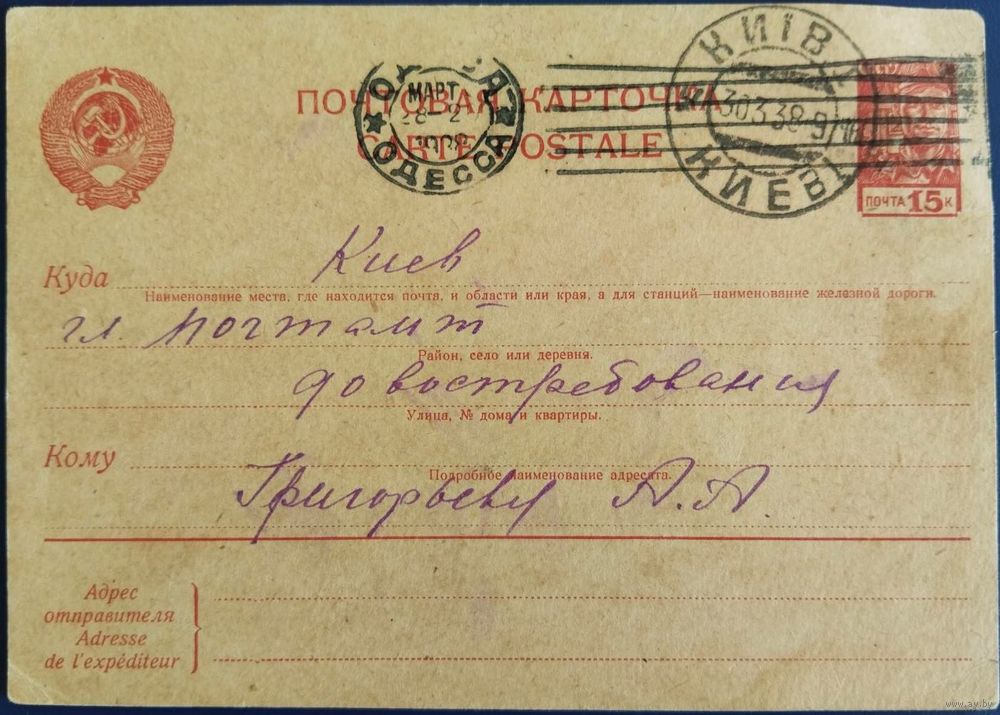 ПОЧТОВАЯ КАРТОЧКА
CARTE POSTALE
ОДЕССА
МАРТ
28-2
1938
ОДЕССА
КИЇВ
30.3.38-9
КИЕВ
ПОЧТА 15 К
Куда Киев
Наименование места, где находится почта, и области или края, а для станций—наименование железной дороги.
гл. почтамт
Район, село или деревня.
до востребования
Улица, № дома и квартиры.
Кому
Подробное наименование адресата.
Григорьевя А.А.
Адрес
отправителя
Adresse
de l'expéditeur
www.ay.by